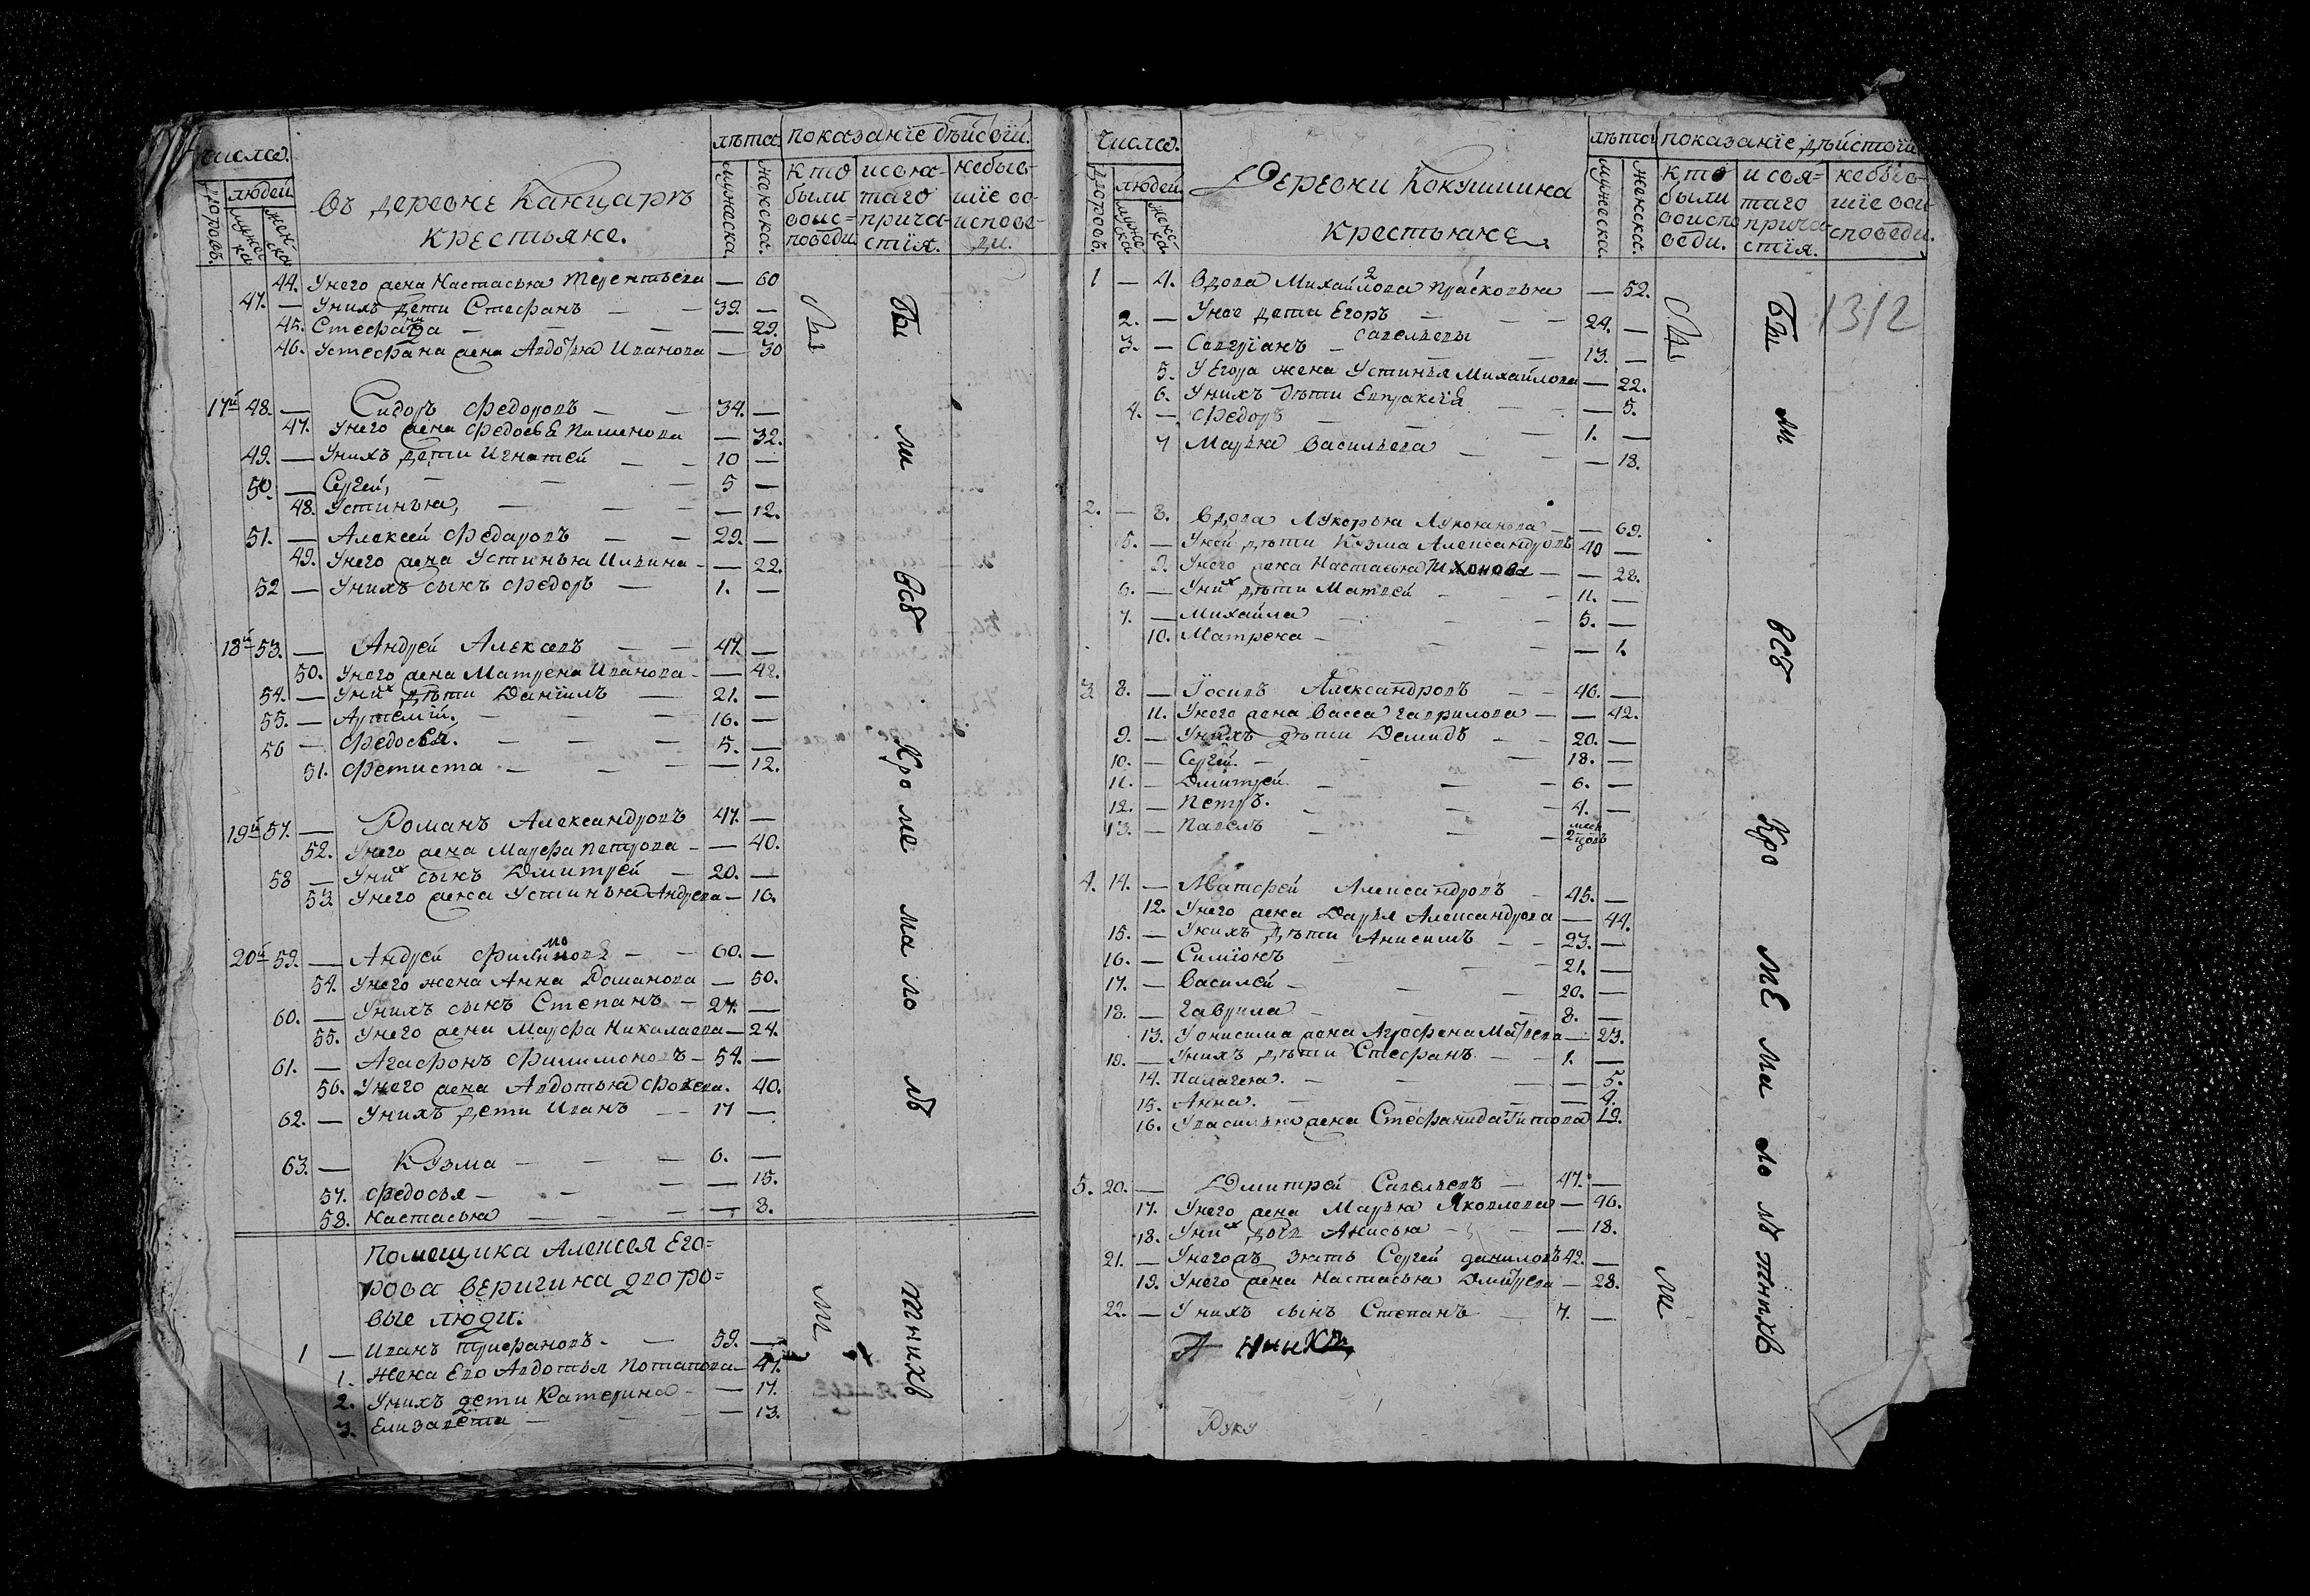 числа.
лѣта показанїе дѣйсвїи.
людей
дворовъ.
мужеска
женска
въ деревнѣ Канцарѣ
крестьяне.
мужеска.
женска.
кто были воис=поведи
исвя=таго прича=стїя.
небыв=шїе во исповѣ=ди.
44. Унего жена Настасья Терентьева — 60
47. — Унихъ дети Стефанъ — — 39. —
45. Стефанида — — — — 29.
46. Устефана жена Авдотья Иванова — 30
17й 48. — Сидоръ Федоровъ — — 34. —
47. Унего жена Федосья Пименова — 32.
49. — Унихъ дети Игнатей — — 10 —
50. — Сергей, — — — 5 —
48. Устинья, — — — — 12.
51. — Алексей Федаровъ — — 29. —
49. Унего жена Устинья Ильина — — 22.
52 — Унихъ сынъ Федоръ — 1. —
18й 53. — Андрей Алексевъ — — 47. —
50. Унего жена Матрена Иванова — — 42.
54. — Унихъ дѣти Данїилъ — 21. —
55. — Артемїй, — — — 16. —
56 — Федосей. — — — 5. —
51. Фетиста — — — — 12.
19й 57. — Романъ Александровъ 47. —
52. Унего жена Марфа Петрова — — 40.
58 — Унихъ сынъ Дмитрей — 20. —
53. Унего жена Устинья Андрева — 16.
20й 59. — Андрей Филимоновъ — — 60. —
54. Унего жена Анна Романова — 50.
60. — Унихъ сынъ Степанъ — 27. —
55. Унего жена Марфа Николаева — 24.
61. — Агафонъ Филимоновъ — 54. —
56. Унего жена Авдотья Фокева. 40.
62. — Унихъ дети Иванъ — — 17 —
63. — Кузма — — — 6. —
57. Федосья — — — — 15.
58. Настасья — — — — 8.
Помещика Алексея Его=
рова Веригина дворо=
вые люди:
1 — Иванъ Трифановъ — — 59. —
1. Жена Его Авдотья Потапова — 47.
2. Унихъ дети Катерина — — 17.
3. Елизавета — — — 13.
Бы ли всѣ Кро ме ма ло лѣ тнихъ
числа.
лѣта показанїе дѣйстvїи
людей
дворовъ.
мужеска.
женска.
Деревни Кокушкина
крестьяне
мужеска.
женска.
кто были воиспо веди.
и свя=таго прича стїя.
небыв=шїе вои сповѣди.
1312
1 — 4. Вдова Михайлова Прасковья — 52.
2. — Унее дети Егоръ — — — 24. —
савельевы
3. — Саверїанъ — — — 13. —
5. У Егора жена Устинья Михайлова — 22.
6. Унихъ дѣти Евпраксїя — — 5.
4. — Федоръ — — — 1. —
7 Марья Васильева — — — 18.
2. — 8. Вдова Лукерья Лукоянова — — 69.
5. — Уней дѣти Кузма Александровъ 40 —
9. Унего жена Настасья Тихонова — — 28.
6. — Унихъ дѣти Матвей — — 11. —
7. — Михайла — — — 5. —
10. Матрена — — — — 1.
3 8. — Їосивъ Александровъ — — 46. —
11. Унего жена Васса Гаврилова — — 42.
9. — Унихъ дѣти Демидъ — — 20. —
10. — Сергѣй. — — — 18. —
11. — Дмитрей. — — — 6. —
12. — Петръ. — — — 4. —
13. — Павелъ — — — 2 месецовъ
4. 14. — Матфей Александровъ — 45. —
12. Унего жена Дарья Александрова — 44.
15. — Унихъ дѣти Анисимъ — — 23. —
16. — Симїонъ — — 21. —
17. — Василей — — — 20. —
18. — Гаврила — — — 8. —
13. У онисима жена Агрофена Матвева — 23.
19. — Унихъ дѣти Стефанъ — — 1. —
14. Палагея. — — — — 5.
15. Анна. — — — — 4.
16. Увасилья жена Стефанида Титова 19.
5. 20. — Дмитрей Савельевъ — 47. —
17. Унего жена Марья Яковлева — 46.
18. Унихъ дочь Анисья — — — 18.
21. — Унегожъ зять Сергей даниловъ 42. —
19. Унего жена Настасья Дмитрева — 28.
22. — Унихъ сынъ Степанъ — 7. —
Руку
Бы ли всѣ Кро МЕ Ма ло лѣ тнихъ